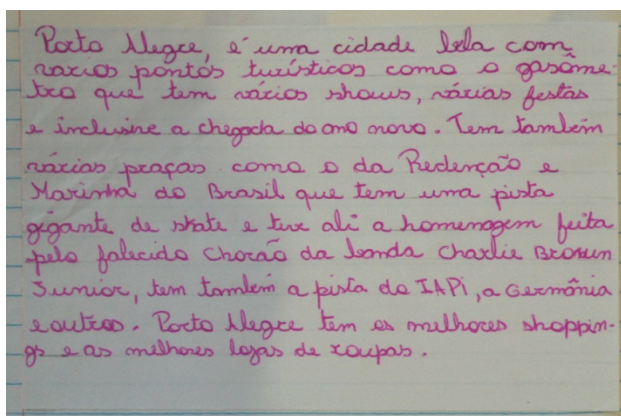 Porto Alegre, é uma cidade bela com
varios pontos turísticos como o gasôme-
tro que tem vários shows, várias festas
e inclusive a chegada do ano novo. Tem também
várias praças como o da Redenção e
Marinha do Brasil que tem uma pista
gigante de skate e teve ali a homenagem feita
pelo falecido Chorão da banda Charlie Brown
Junior, tem também a pista do IAPi, a Germânia
e outros. Porto Alegre tem os melhores shoppin-
gs e as melhores lojas de roupas.